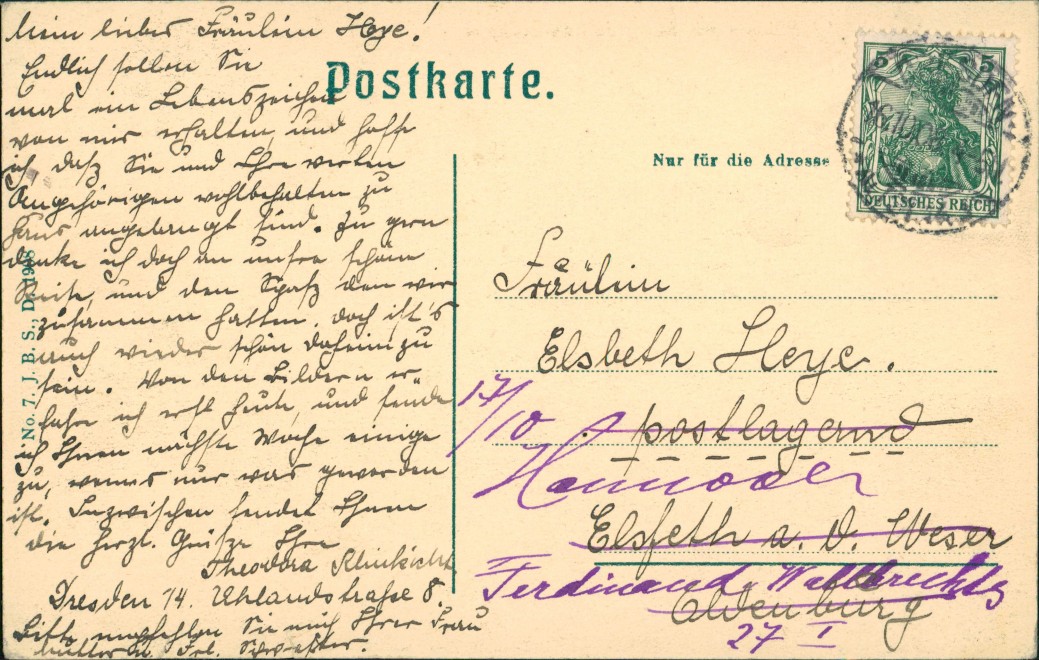 Mein liebes Fräulein Heye!
Endlich sollen Sie
mal ein Lebenszeichen
von mir erhalten, und hoffe
ich, daß Sie und Ihre werten
Angehörigen wohlbehalten zu
Haus angelangt sind. Zu gern
denke ich doch an unsre schöne
Reise, und den Spaß den wir
zusammen hatten, doch ist's
auch wieder schön daheim zu
sein. Von den Bildern er-
fahre ich erst heute, und sende
ich Ihnen nächste Woche einige
zu, wenns nur was geworden
ist. Inzwischen sendet Ihnen
die herzl. Grüße Ihre
Theodora Klinkicht
Dresden 14. Uhlandstraße 8.
Bitte empfehlen Sie mich Ihrer Frau
Mutter u. Frl. Schwester.
No. 7. J. B. S., D. 1908
Postkarte.
Nur für die Adresse
5 5
DEUTSCHES REICH
Fräulein
Elsbeth Heye.
17/10
postlagernd
Hannover
Elsfeth a. d. Weser
Ferdinand Wallbrechtstr
Oldenburg
27 I